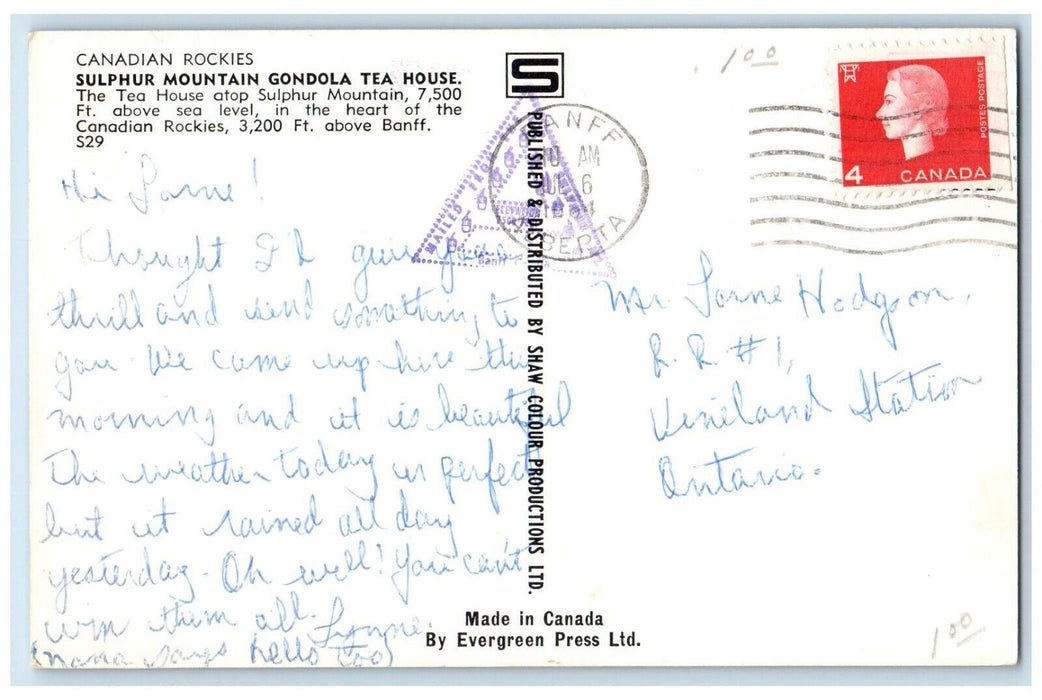 CANADIAN ROCKIES
SULPHUR MOUNTAIN GONDOLA TEA HOUSE.
The Tea House atop Sulphur Mountain, 7,500
Ft. above sea level, in the heart of the
Canadian Rockies, 3,200 Ft. above Banff.
S29
Hi Lorne!
Thought I'd give you a
thrill and send something to
you. We came up here this
morning and it is beautiful
The weather today is perfect
but it rained all day
yesterday. Oh well! You can't
win them all.
Lynne.
(Nana says hello too)
S
PUBLISHED & DISTRIBUTED BY SHAW COLOUR PRODUCTIONS LTD.
MAILED
ELEVATION
Banff
BANFF
10 AM
JUL 6
ALBERTA
1.00
4
CANADA
POSTES POSTAGE
Mr Lorne Hodgson,
R.R. #1,
Vineland Station
Ontario.
Made in Canada
By Evergreen Press Ltd.
1.00